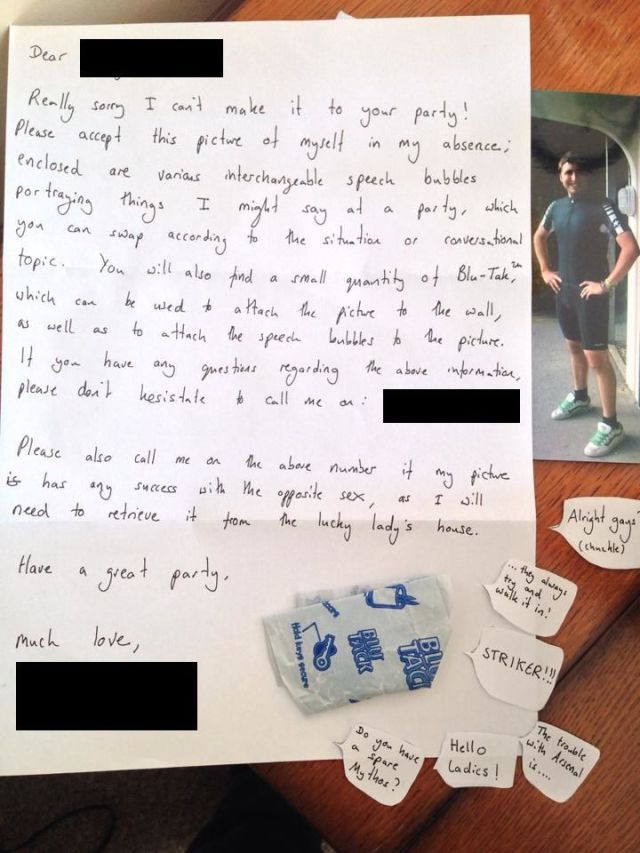 Dear
Really sorry I can't make it to your party!
Please accept this picture of myself in my absence;
enclosed are various interchangeable speech bubbles
portraying things I might say at a party, which
you can swap according to the situation or conversational
topic. You will also find a small quantity of Blu-Tak,™
which can be used to attach the picture to the wall,
as well as to attach the speech bubbles to the picture.
If you have any questions regarding the above information,
please don't hesistate to call me on:
Please also call me on the above number if my picture
is has any success with the opposite sex, as I will
need to retrieve it from the lucky lady's house.
Have a great party,
Much love,
Hold keys secure
BLU
TACK
BLU
TAC
Alright gays?
(chuckle)
...they always
try and
walk it in!
STRIKER!!!
The trouble
with Arsenal
is....
Hello
Ladies!
Do you have
a spare
Mythos?